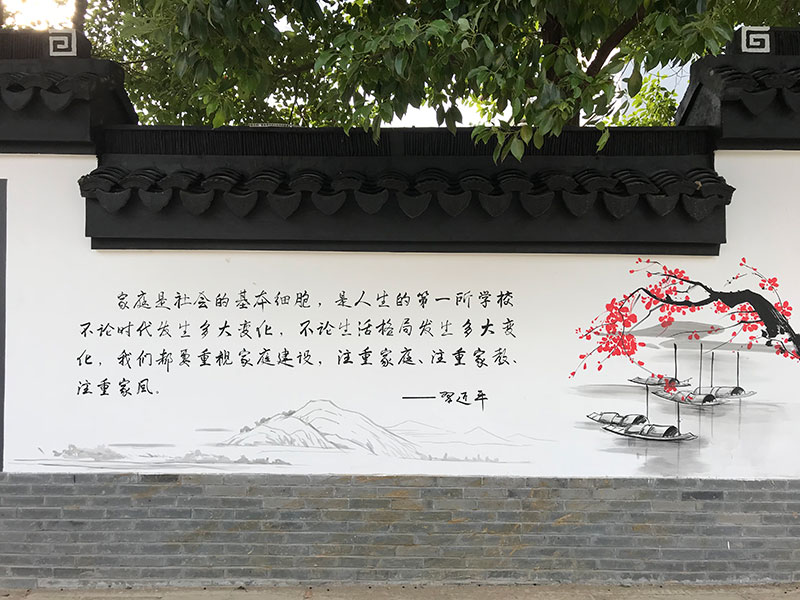 家庭是社会的基本细胞，是人生的第一所学校
不论时代发生多大变化，不论生活格局发生多大变
化，我们都要重视家庭建设，注重家庭、注重家教、
注重家风。
——习近平